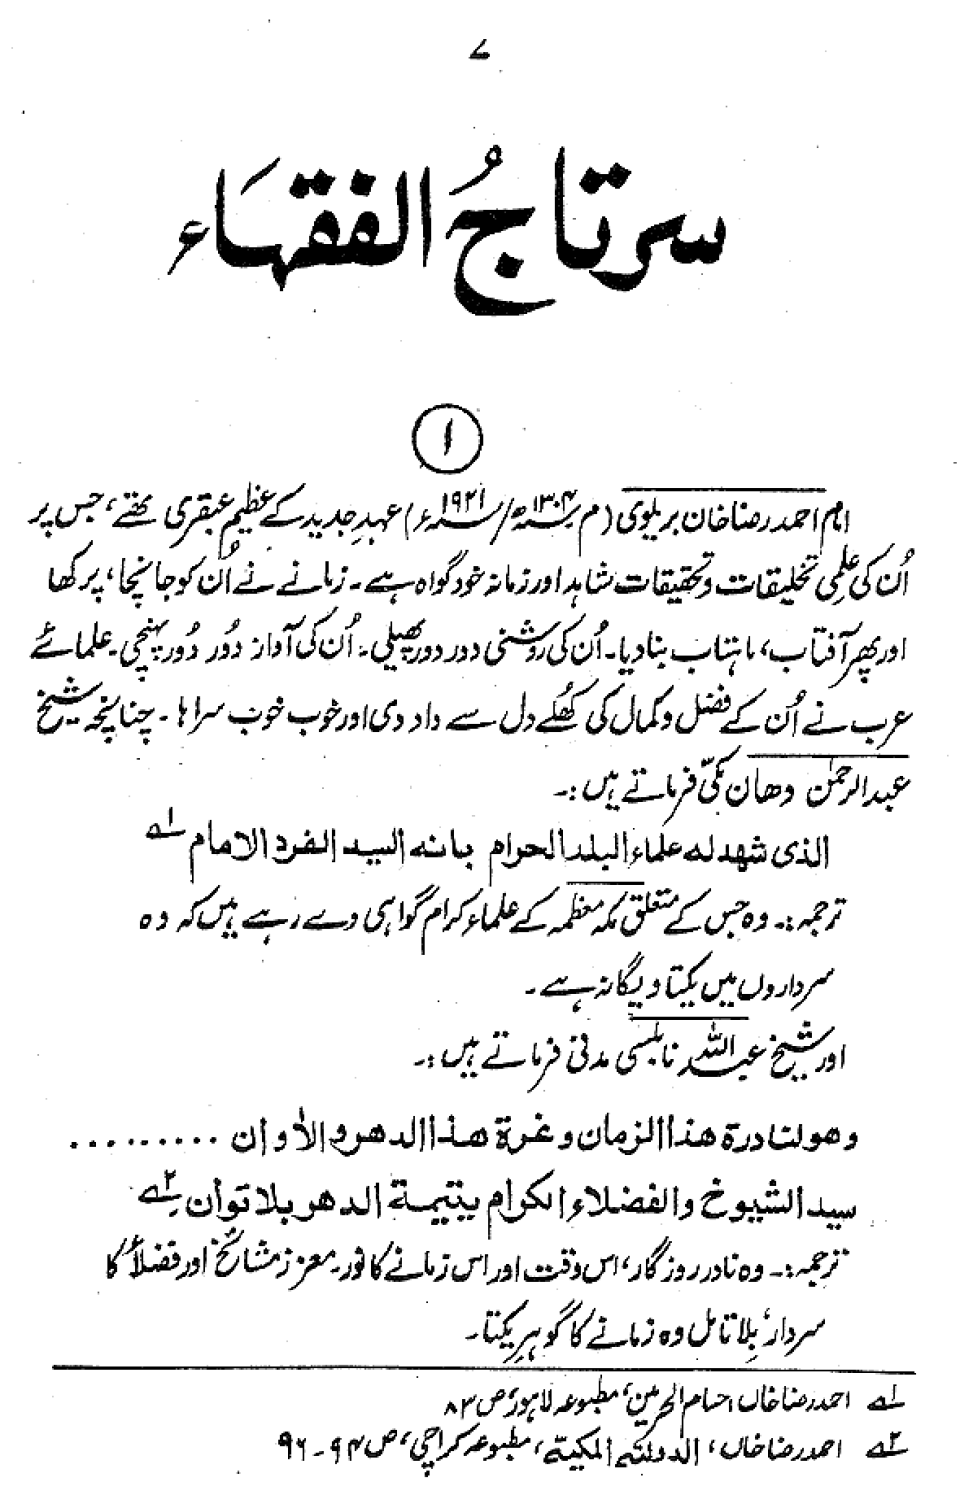 ۷
سرتاجُ الفقہَاء
۱
امام احمد رضا خان بریلوی (م ۱۳۰۴ھ/ ۱۹۲۱ء) عہدِ جدید کے عظیم عبقری تھے، جس پر
اُن کی علمی تخلیقات و تحقیقات شاہد اور زمانہ خود گواہ ہے۔ زمانے نے اُن کو جانچا، پرکھا
اور پھر آفتاب، ماہتاب بنا دیا۔ اُن کی روشنی دور دور پھیلی۔ اُن کی آواز دُور دُور پہنچی۔ علمائے
عرب نے اُن کے فضل و کمال کی کُھلے دل سے داد دی اور خوب خوب سراہا۔ چنانچہ شیخ
عبدالرحمٰن دھان مکیّ فرماتے ہیں :۔
الذی شھد لہ علماء البلد الحرام بانہ السید الفرد الامام ۱ے
ترجمہ :۔ وہ جس کے متعلق مکہ معظمہ کے علماء کرام گواہی دے رہے ہیں کہ وہ
سرداروں میں یکتا و یگانہ ہے۔
اور شیخ عبداللہ نابلسی مدنی فرماتے ہیں :۔
وھو لنادرۃ ھذا الزمان وغرۃ ھذا الدھر والأوان .........
سید الشیوخ والفضلاء الکرام یتیمۃ الدھر بلا توان ۲ے
ترجمہ :۔ وہ نادر روزگار، اس وقت اور اس زمانے کا نور۔ معزز مشائخ اور فضلأ کا
سردار، بِلا تامل وہ زمانے کا گوہرِ یکتا۔
۱ے احمد رضا خاں، حسام الحرمین، مطبوعہ لاہور، ص ۸۳
۲ے احمد رضا خاں، الدولتہ المکیۃ، مطبوعہ کراچی، ص ۹۴-۹۶